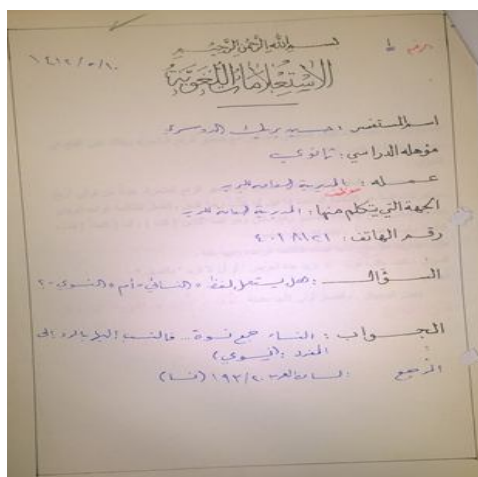 بسم الله الرحمن الرحيم
١٤١٢/٥/١٠
الاستعلامات اللغوية
اسم المستفسر : حسين بريك الدوسري
مؤهله الدراسي : ثانوي
عمله : موظف المديرية العامة للبريد
الجهة التي يتكلم منها : المديرية العامة للبريد
رقم الهاتف :
السؤال : هل يستعمل لفظ « النسائي » أم « النسوي » ؟
الجواب : النساء جمع نسوة .. فالنسب إليها بالرد إلى
المفرد : (نسوي)
المرجع : لسان العرب ١٩٣/٢٠ (نسا)